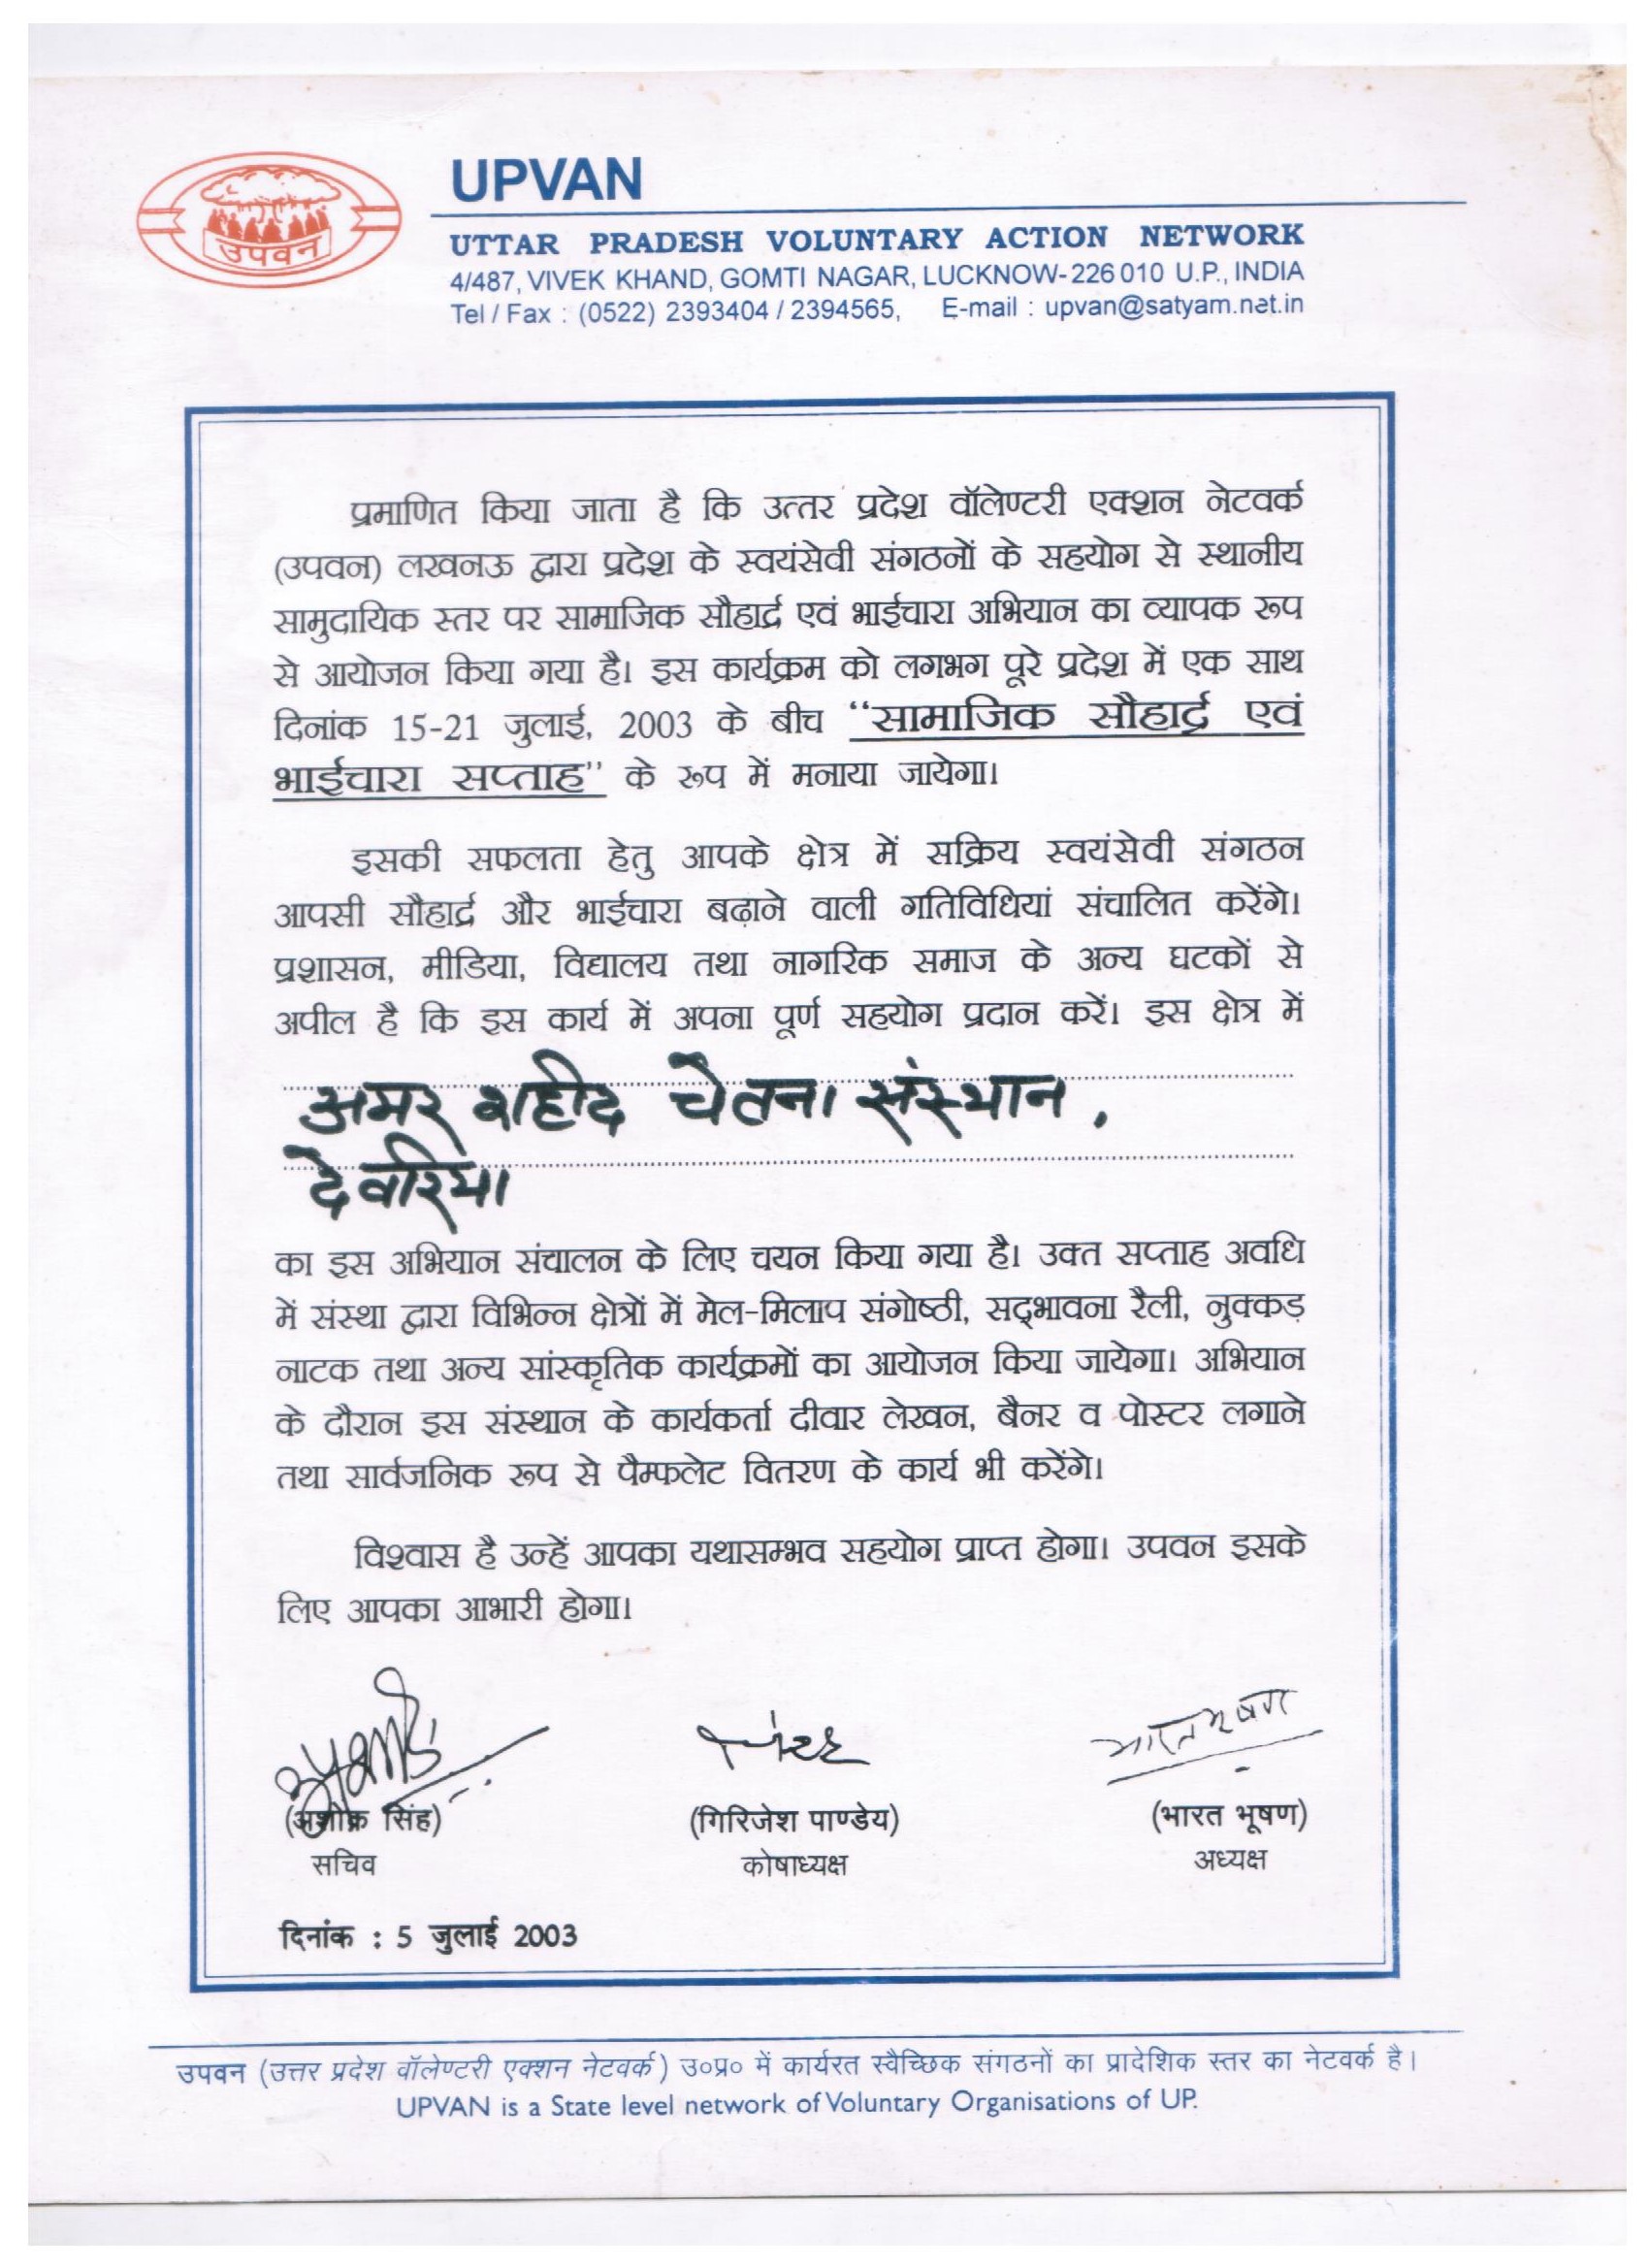 उपवन
UPVAN
UTTAR PRADESH VOLUNTARY ACTION NETWORK
4/487, VIVEK KHAND, GOMTI NAGAR, LUCKNOW-226 010 U.P., INDIA
Tel / Fax : (0522) 2393404 / 2394565, E-mail : upvan@satyam.net.in
प्रमाणित किया जाता है कि उत्तर प्रदेश वॉलेण्टरी एक्शन नेटवर्क
(उपवन) लखनऊ द्वारा प्रदेश के स्वयंसेवी संगठनों के सहयोग से स्थानीय
सामुदायिक स्तर पर सामाजिक सौहार्द्र एवं भाईचारा अभियान का व्यापक रूप
से आयोजन किया गया है। इस कार्यक्रम को लगभग पूरे प्रदेश में एक साथ
दिनांक 15-21 जुलाई, 2003 के बीच "सामाजिक सौहार्द्र एवं
भाईचारा सप्ताह" के रूप में मनाया जायेगा।
इसकी सफलता हेतु आपके क्षेत्र में सक्रिय स्वयंसेवी संगठन
आपसी सौहार्द्र और भाईचारा बढ़ाने वाली गतिविधियां संचालित करेंगे।
प्रशासन, मीडिया, विद्यालय तथा नागरिक समाज के अन्य घटकों से
अपील है कि इस कार्य में अपना पूर्ण सहयोग प्रदान करें। इस क्षेत्र में
अमर शहीद चेतना संस्थान,
देवरिया
का इस अभियान संचालन के लिए चयन किया गया है। उक्त सप्ताह अवधि
में संस्था द्वारा विभिन्न क्षेत्रों में मेल-मिलाप संगोष्ठी, सद्भावना रैली, नुक्कड़
नाटक तथा अन्य सांस्कृतिक कार्यक्रमों का आयोजन किया जायेगा। अभियान
के दौरान इस संस्थान के कार्यकर्ता दीवार लेखन, बैनर व पोस्टर लगाने
तथा सार्वजनिक रूप से पैम्फलेट वितरण के कार्य भी करेंगे।
विश्वास है उन्हें आपका यथासम्भव सहयोग प्राप्त होगा। उपवन इसके
लिए आपका आभारी होगा।
भारत भूषण
(अशोक सिंह) (गिरिजेश पाण्डेय) (भारत भूषण)
सचिव कोषाध्यक्ष अध्यक्ष
दिनांक : 5 जुलाई 2003
उपवन (उत्तर प्रदेश वॉलेण्टरी एक्शन नेटवर्क) उ०प्र० में कार्यरत स्वैच्छिक संगठनों का प्रादेशिक स्तर का नेटवर्क है।
UPVAN is a State level network of Voluntary Organisations of UP.